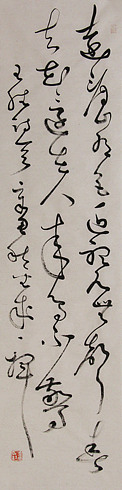 遠看山有色近聽水無聲春
去花還在人來鳥不驚
王維詩